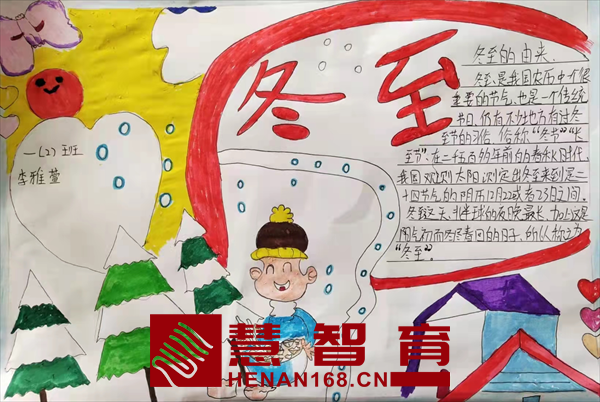 冬至
一(2)班
李雅萱
冬至的由来
冬至是我国农历中一个很
重要的节气,也是一个传统
节日,仍有不少地方有过冬
至节的习俗,俗称“冬节”“长
至节”,在二千五百多年前的春秋时代,
我国观测太阳测定出冬至来到是二
十四节气,的阴历12月22或者23日之间,
冬至这天,北半球的夜晚最长,加上这是
阳气初而冬尽春回的日子,所以称之为
“冬至”。
慧智育
HENAN168.CN